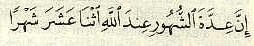 إِنَّ عِدَّةَ الشُّهُورِ عِندَ اللَّهِ اثْنَا عَشَرَ شَهْرًا